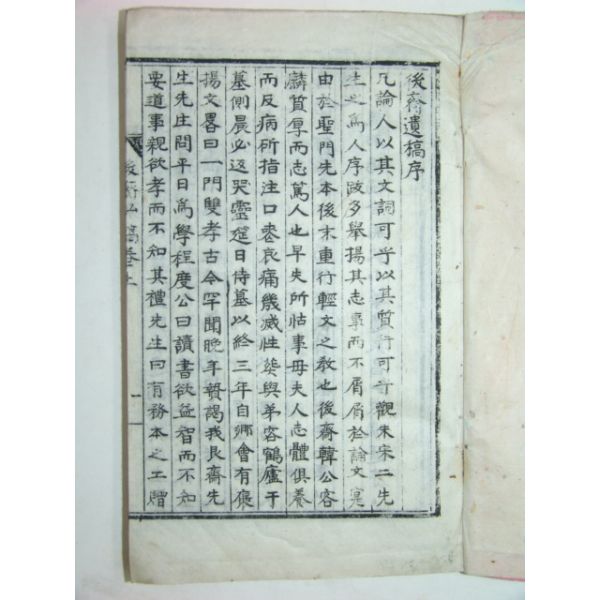 後齋遺稿序
凡論人以其文詞可乎以其質行可乎觀朱宋二先
生之爲人序跋多擧揚其志事而不屑屑於論文寔
由於聖門先本後末重行輕文之敎也後齋韓公容
麟質厚而志篤人也早失所怙事毋夫人志體俱養
而反病所指注口 哀痛幾滅性葬與弟容鶴廬于
墓側晨必返哭靈筵日侍墓以終三年自鄉會有褒
揚文畧曰一門雙孝古今罕聞晩年贄謁我艮齋先
生先庄問平日爲學程度公曰讀書欲益智而不知
要道事親欲孝而不知其禮先生曰有務本之工贈
後齋 稿卷上 一